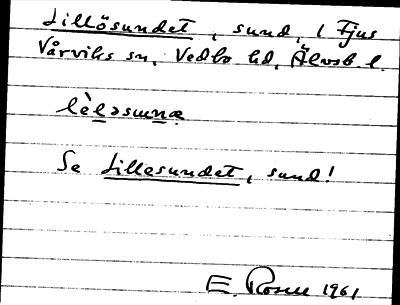 Lillösundet, sund, i Tjus
Vårviks sn, Vedbo hd, Älvsb. l.
lèləsunnæ
Se Lillesundet, sund!
E. Rosell 1961